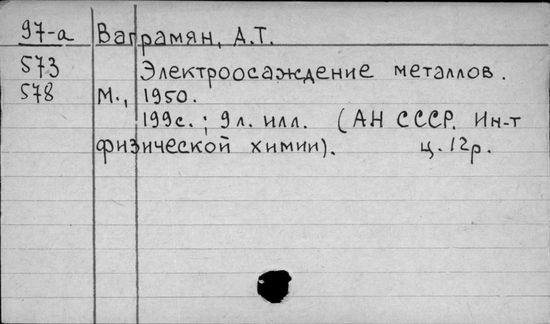 97-а Ваграмян, А.Т.
573 Электроосаждение металлов.
578 М., 1950.
199с.; 9л. илл. (АН СССР. Ин-т
физической химии). ц. 12р.